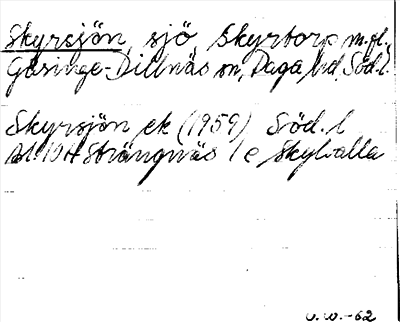 Skyresjön, sjö, Skyrtorp m.fl.
Gåsinge-Dillnäs sn, Daga hd, Söd. l.
Skyrsjön ek (1959) Söd. l
bl. 10H Strängnäs 1 e Skylvalla
U.W.-62